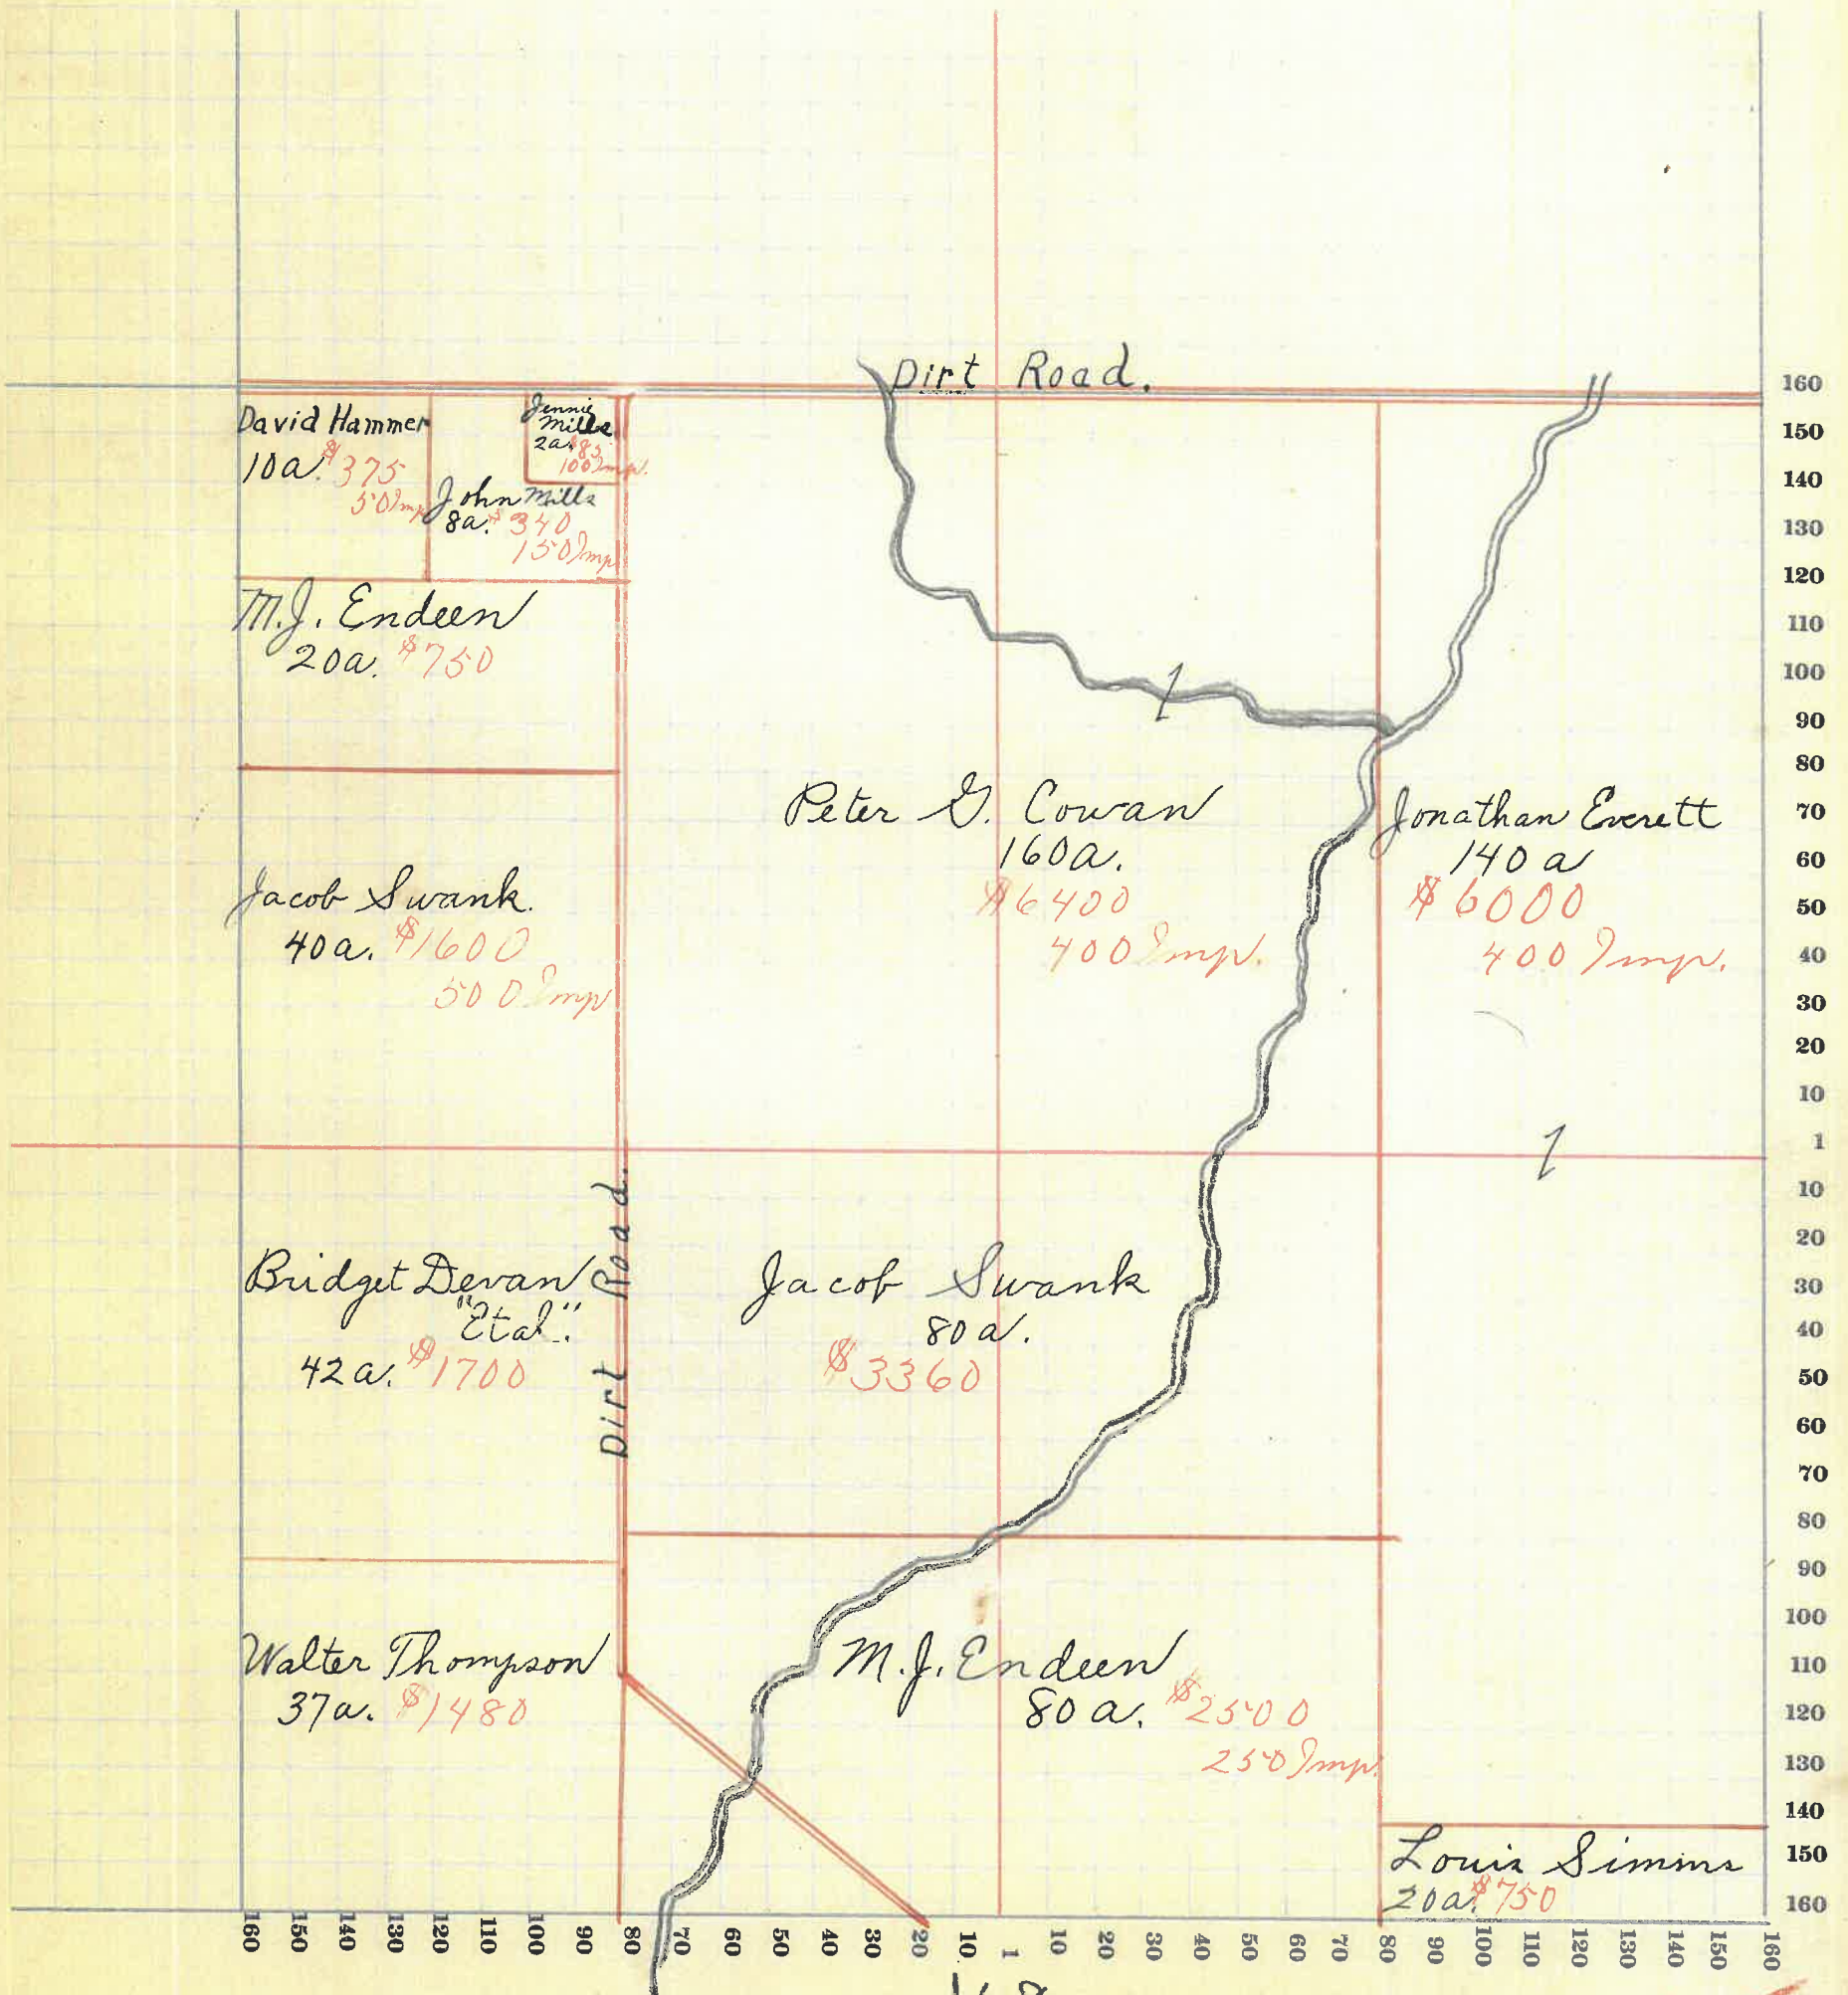 Dirt Road.
David Hammer
10a. $375
50 Imp
Jennie
Mills
2a. $85
100 Imp.
John Mills
8a. $340
150 Imp
M.J. Endeen
20a. $750
Jacob Swank.
40a. $1600
500 Imp
Peter G. Cowan
160a.
$6400
400 Imp.
Jonathan Everett
140 a
$6000
400 Imp.
1
1
Bridget Devan
"Etal".
42a. $1700
Dirt Road.
Jacob Swank
80a.
$3360
Walter Thompson
37a. $1480
M.J. Endeen
80 a. $2500
250 Imp.
Louis Simms
20a. $750
160
150
140
130
120
110
100
90
80
70
60
50
40
30
20
10
1
10
20
30
40
50
60
70
80
90
100
110
120
130
140
150
160
160 150 140 130 120 110 100 90 80 70 60 50 40 30 20 10 1 10 20 30 40 50 60 70 80 90 100 110 120 130 140 150 160